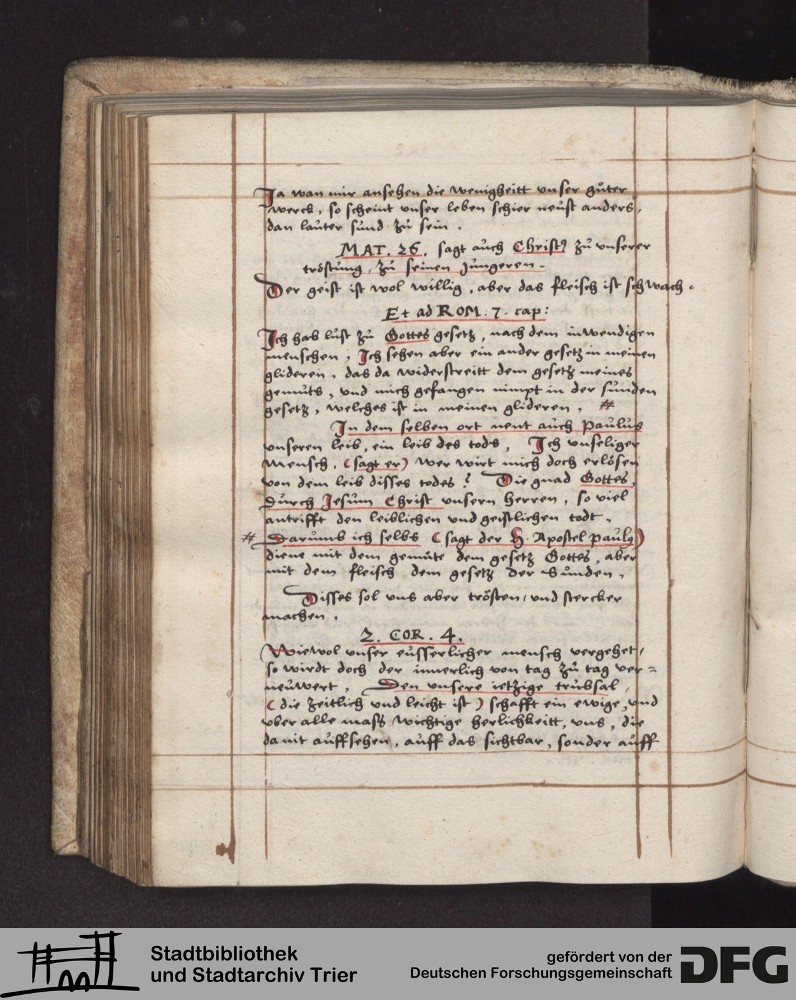 Ja wan mir ansehen die wenigheitt unser gůter
werck, so scheint unser leben schier neust anders,
dan lauter sund zů sein.
MAT. 26. sagt auch Christ9 zů unserer
tröstung, zů seinen Jungeren.
Der geist ist wol willig, aber das fleisch ist schwach.
Et ad ROM. 7. cap:
Ich hab lust zů Gottes gesetz, nach dem inwendigen
menschen, Ich sehen aber ein ander gesetz in meinen
glideren, das da widerstreitt dem gesetz meines
gemůts, und mich gefangen nimpt in der sunden
gesetz, welches ist in meinen glideren. #
In dem selben ort nent auch Paulus
unseren leib, ein leib des tods, Ich unseliger
mensch, (sagt er) wer wirt mich doch erlösen
von dem leib disses todes? Die gnad Gottes,
durch Jesum Christ unsern herren, so viel
antrifft den leiblichen und geistlichen todt.
# Darumb ich selbs (sagt der H. Apostel Paulus)
diene mit dem gemůte dem gesetz Gottes, aber
mit dem fleisch dem gesetz der Sunden.
Disses sol uns aber trösten, und stercker
machen.
2. COR. 4.
Wiewol unser eusserlicher mensch vergehet,
so wirdt doch der innerlich von tag zů tag ver=
neuwert, Den unsere ietzige trubsal,
(die zeitlich und leicht ist) schafft ein ewige, und
uber alle mass wichtige herlichkeitt, uns, die
da nit auffsehen, auff das sichtbar, sonder auff
Stadtbibliothek
und Stadtarchiv Trier
gefördert von der
Deutschen Forschungsgemeinschaft
DFG